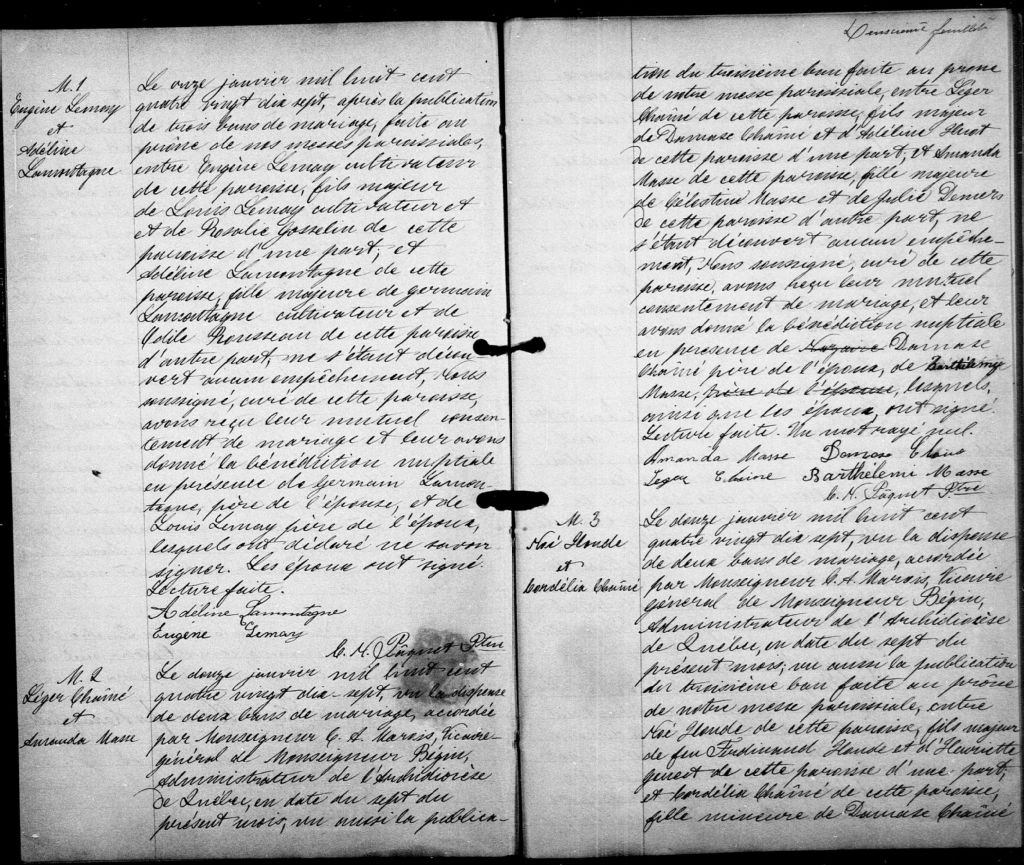 M. 1
Eugène Lemay
et
Adéline
Lamontagne
Le onze janvier mil huit cent
quatre vingt dix sept, après la publication
de trois bans de mariage, faite au
prône de nos messes paroissiales,
entre Eugène Lemay cultivateur
de cette paroisse, fils majeur
de Louis Lemay cultivateur et
et de Rosalie Gosselin de cette
paroisse d'une part, et
Adéline Lamontagne de cette
paroisse, fille majeure de germain
Lamontagne cultivateur et de
Rousseau de cette paroisse
d'autre part, ne s'étant décou-
vert aucun empêchement, Nous
soussigné, curé de cette paroisse,
avons reçu leur mutuel consen-
tement de mariage et leur avons
donné la bénédiction nuptiale
en présence de Germain Lamon-
tagne, père de l'épouse, et de
Louis Lemay père de l'époux,
lesquels ont déclaré ne savoir
signer. Les époux ont signé.
Lecture faite.
Adéline Lamontagne
Eugène Lemay
C. H. Pâquet Ptre
M. 2
Léger Chaîné
et
Amanda Masse
Le douze janvier mil huit cent
quatre vingt dix sept, vu la dispense
de deux bans de mariage, accordée
par Monseigneur C. A. Marois, Vicaire-
général de Monseigneur Bégin,
Administrateur de l'Archidiocèse
de Québec, en date du sept du
présent mois, vu aussi la publica-
Deuxième feuillet
tion du troisième ban faite au prone
de notre messe paroissiale, entre Léger
Chaîné de cette paroisse, fils majeur
de Damase Chaîné et d'Adéline Huot
de cette paroisse d'une part, et Amanda
Masse de cette paroisse, fille majeure
de Célestin Masse et de Julie Demers
de cette paroisse d'autre part, ne
s'étant découvert aucun empêche-
ment, Nous soussigné, curé de cette
paroisse, avons reçu leur mutuel
consentement de mariage, et leur
avons donné la bénédiction nuptiale
en présence de Damase
Chaîné père de l'époux, de Barthélemie
Masse, frère de l'épouse, lesquels,
ainsi que les époux, ont signé.
Lecture faite. Un mot rayé nul.
Amanda Masse Damase
Leger Barthélemi Masse
C. H. Pâquet Ptre
M. 3
Noé Houde
et
Cordélia Chaîné
Le douze janvier mil huit cent
quatre vingt dix sept, vu la dispense
de deux bans de mariage, accordée
par Monseigneur C. A. Marois, Vicaire
général de Monseigneur Bégin,
Administrateur de l'Archidiocèse
de Québec, en date du sept du
présent mois, vu aussi la publication
du troisième ban faite au prône
de notre messe paroissiale, entre
Noé Houde de cette paroisse, fils majeur
de feu Ferdinand Houde et d'Henriette
genest de cette paroisse d'une part,
et Cordélia Chaîné de cette paroisse,
fille mineure de Damase Chaîné